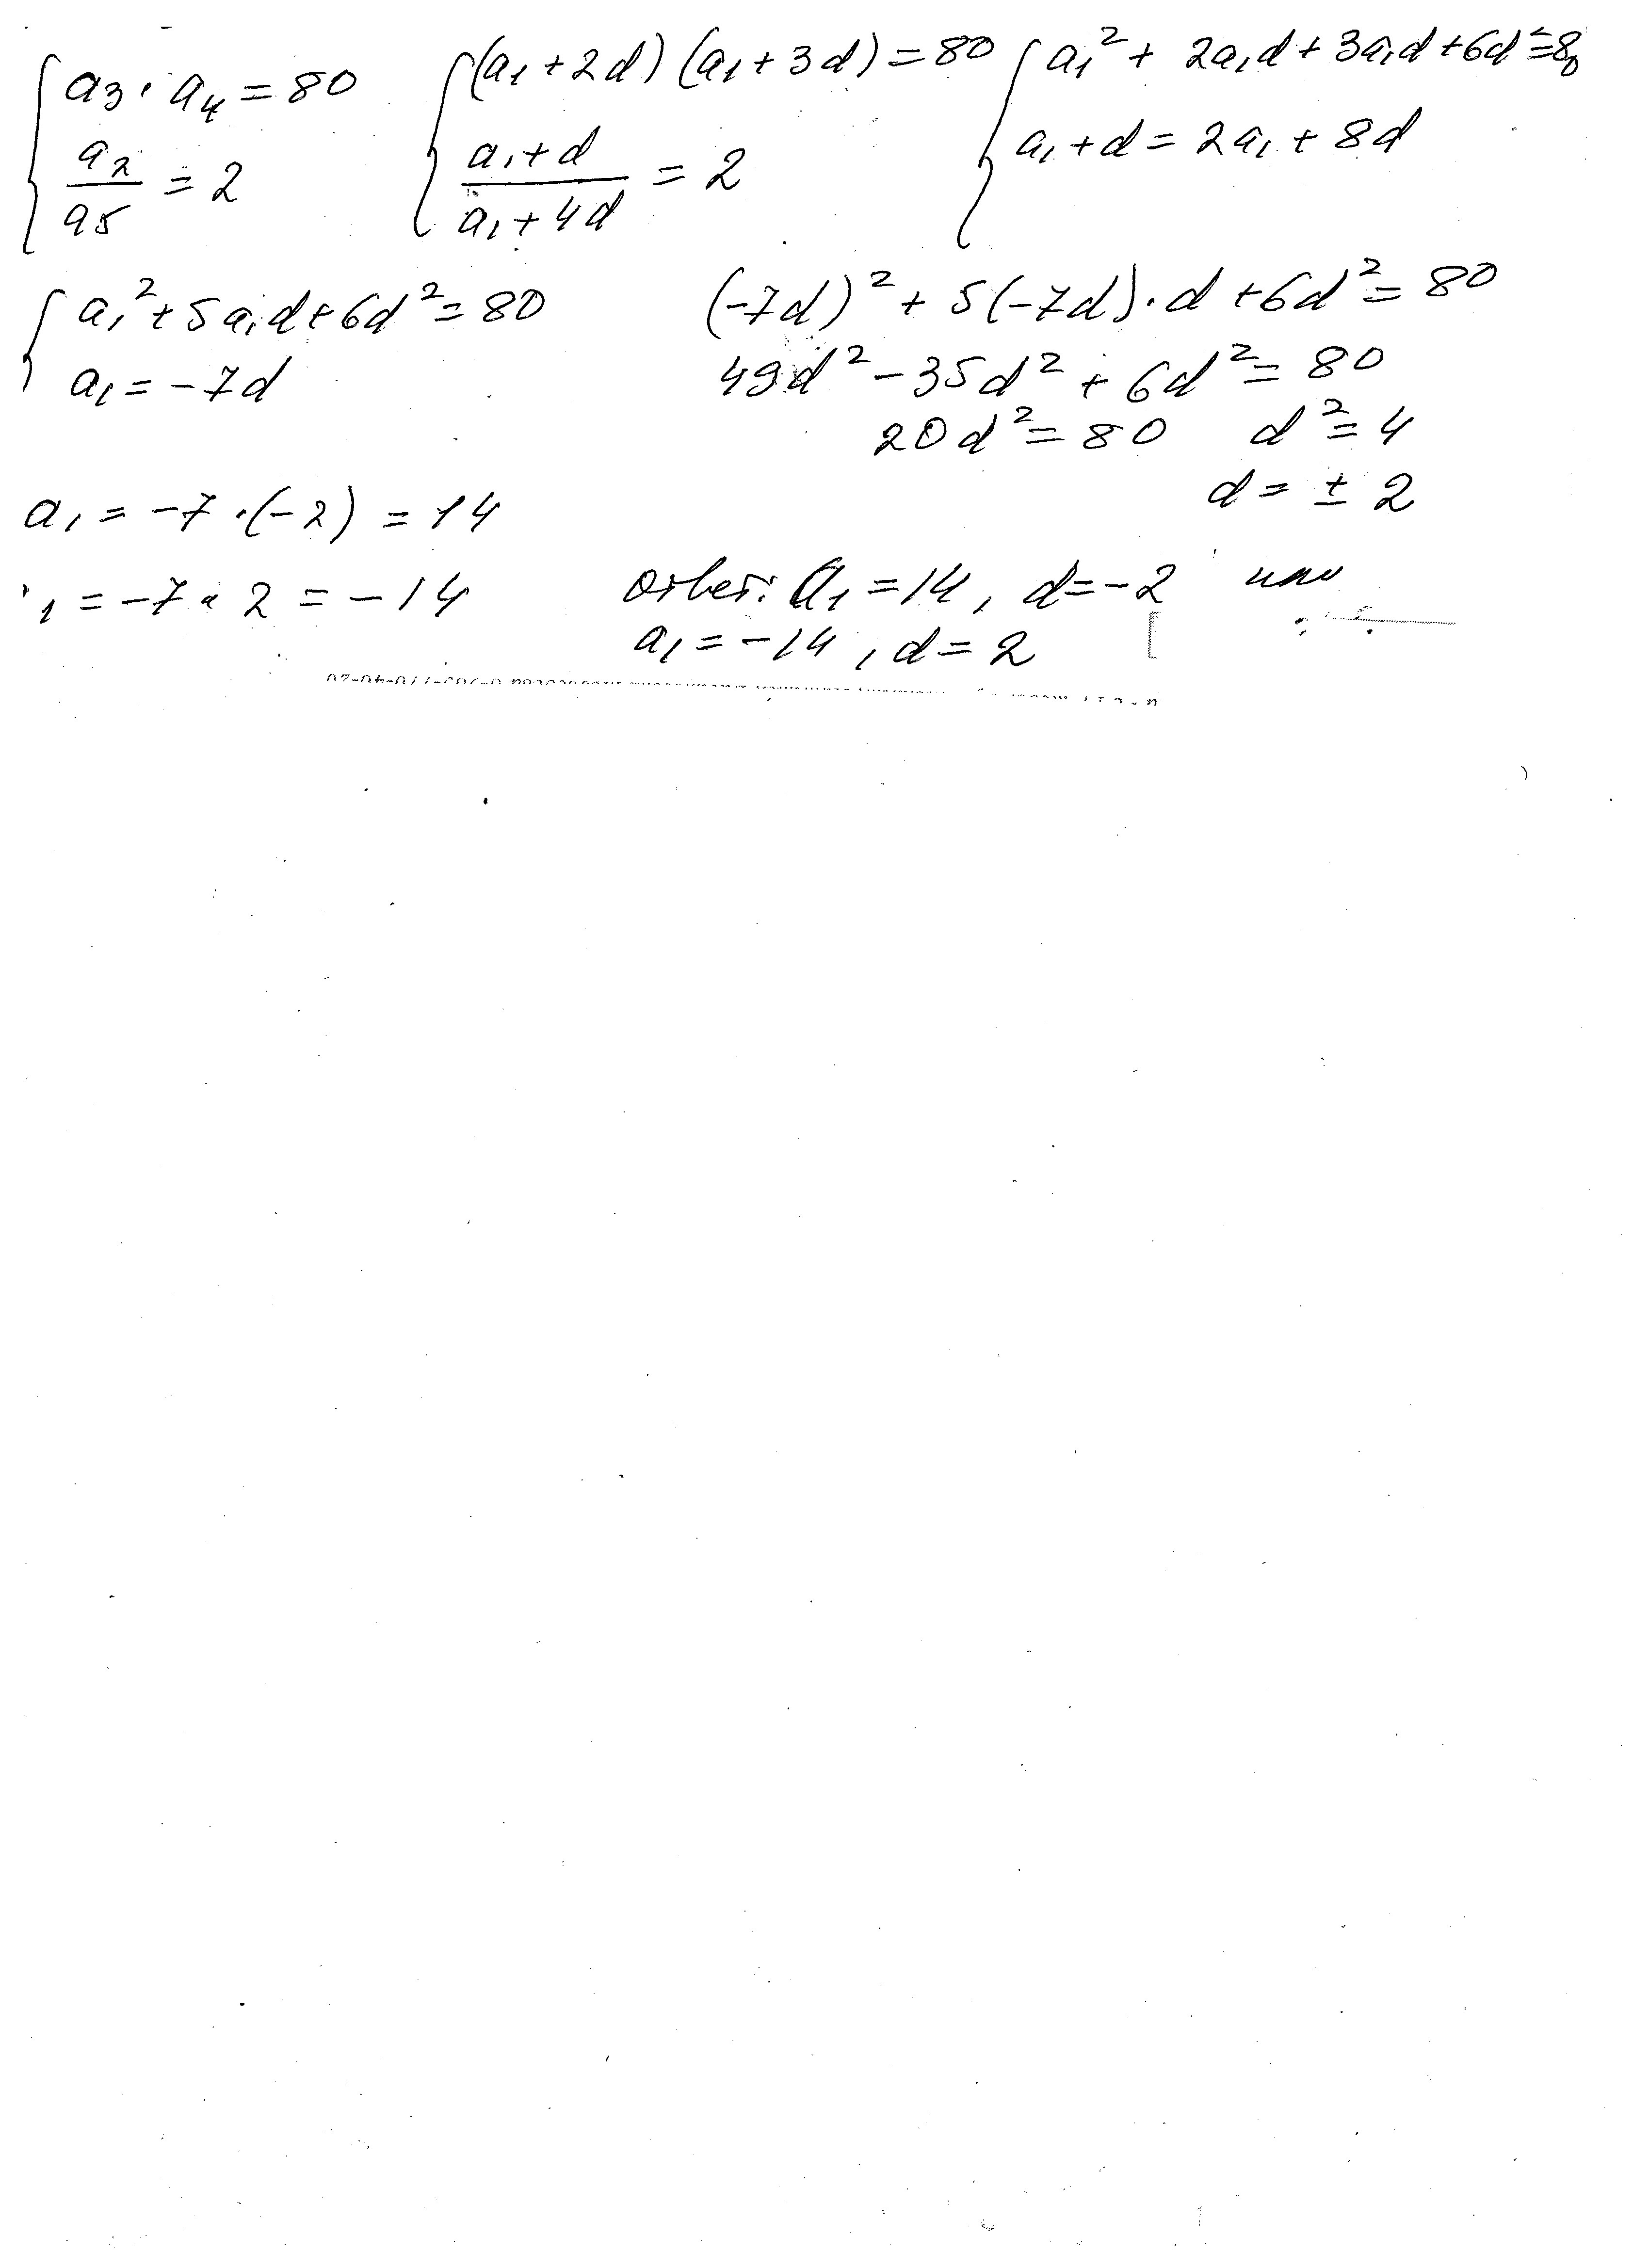 a₃ · a₄ = 80
a₂/a₅ = 2
(a₁ + 2d)(a₁ + 3d) = 80
(a₁ + d)/(a₁ + 4d) = 2
a₁² + 2a₁d + 3a₁d + 6d² = 80
a₁ + d = 2a₁ + 8d
a₁² + 5a₁d + 6d² = 80
a₁ = -7d
(-7d)² + 5(-7d) · d + 6d² = 80
49d² - 35d² + 6d² = 80
20d² = 80 d² = 4
d = ± 2
a₁ = -7 · (-2) = 14
₁ = -7 · 2 = -14
Ответ: a₁ = 14, d = -2 или
a₁ = -14, d = 2